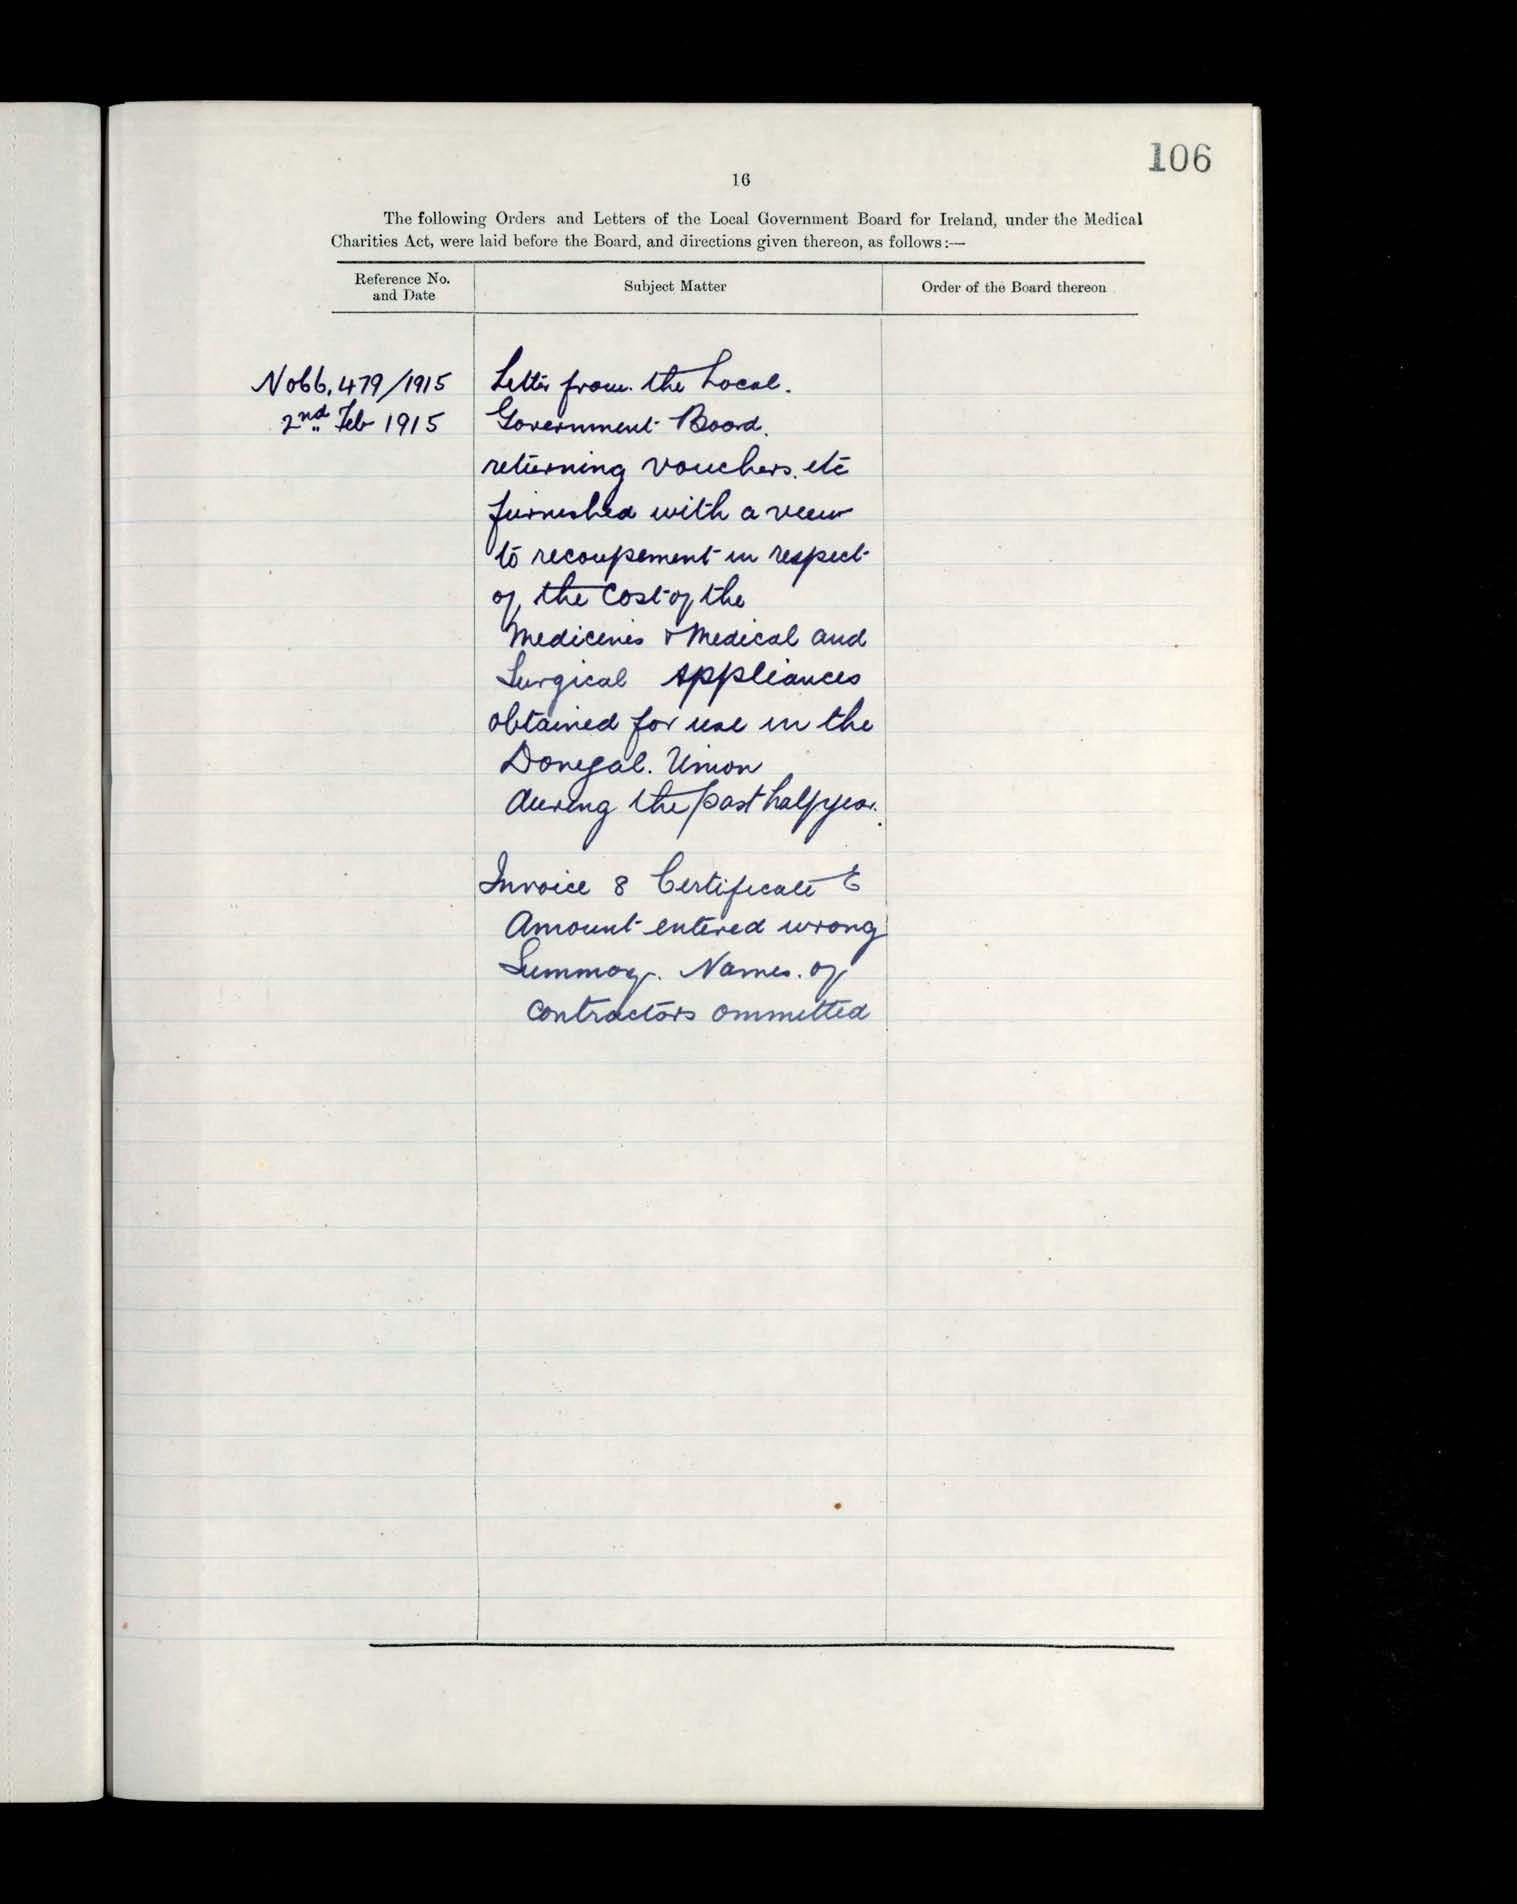 106
16
The following Orders and Letters of the Local Government Board for Ireland, under the Medical
Charities Act, were laid before the Board, and directions given thereon, as follows:—
Reference No. and Date
Subject Matter
Order of the Board thereon
No 66,479/1915
2nd Feb 1915
Letter from the Local.
Government Board.
returning vouchers. etc
furnished with a view
to recoupement in respect
of the Cost of the
Medicines & Medical and
Surgical Appliances
obtained for use in the
Donegal. Union
during the past half year.
Invoice 8 Certificate E
Amount entered wrong
Summary. Names. of
contractors ommitted